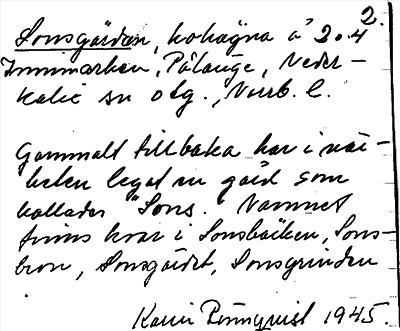 2.
Sonsgärdan, kohagna å 2.4
Innimarken, Pålänge, Neder-
kalix sn o tg., Norrb. l.
Gammalt tillbaka har i när-
heten legat en gård som
kallades "Sons. Namnet
finns kvar i Sonsbäcken, Sons-
bron, Sonsgärdet, Sonsgrinden
Karin Rönnqvist 1945.